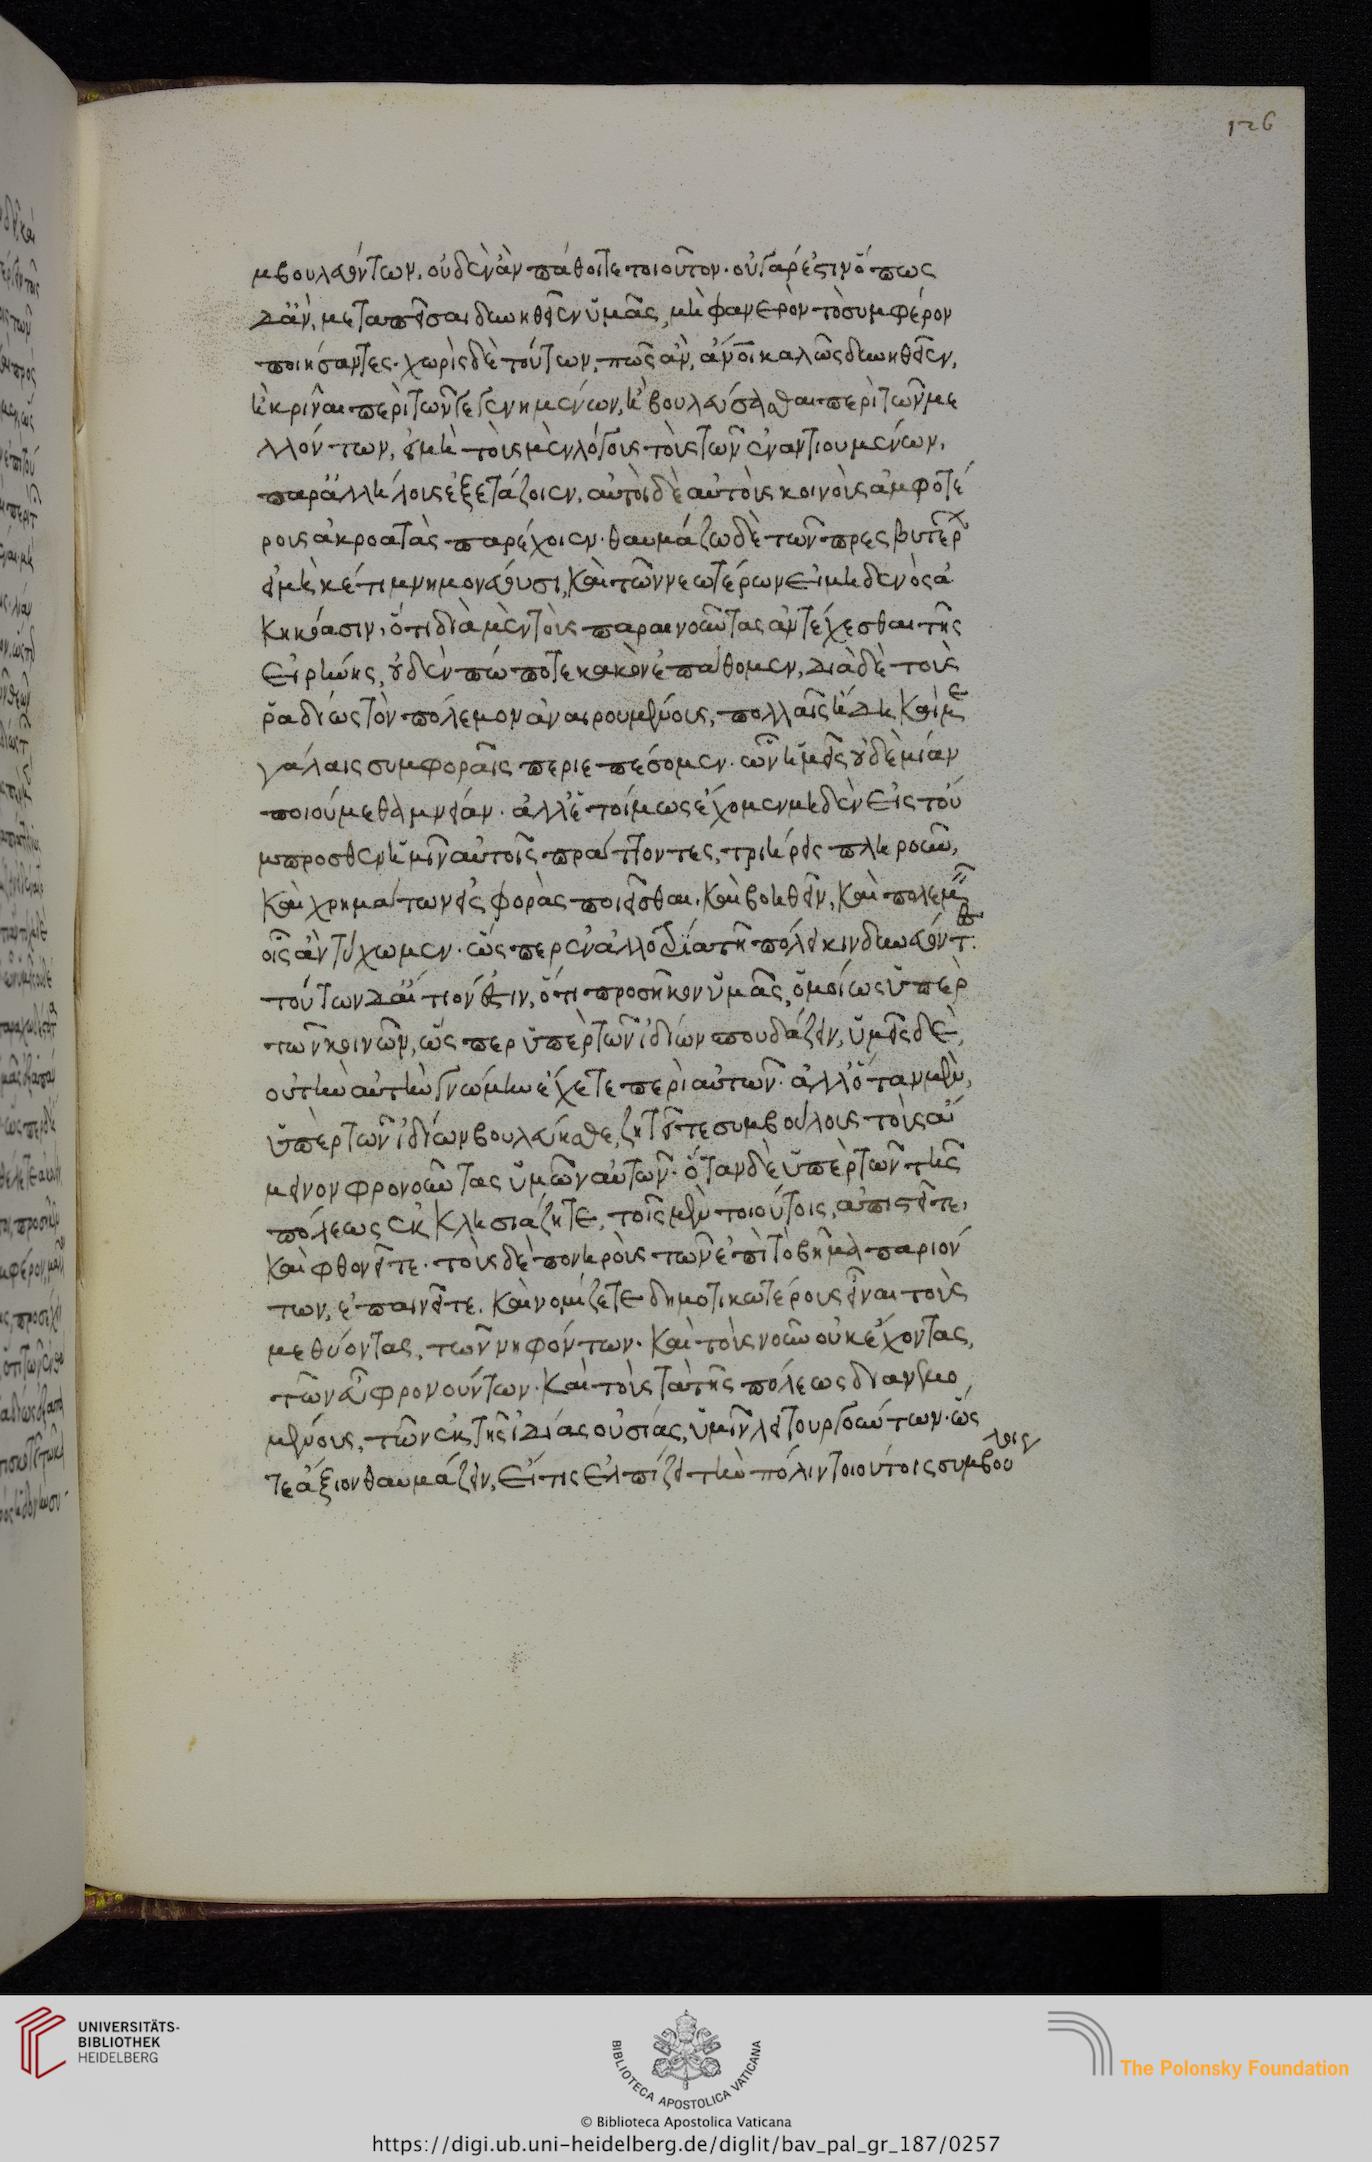 μβουλευόντων. οὐδὲν ἂν πάθοιτε τοιοῦτον. οὐ γάρ ἐστιν ὅπως
δἂν, μεταπεῖσαι διωηθεῖεν ὑμᾶς, μὴ φανερὸν τὸ συμφέρον
ποιήσαντες. χωρὶς δὲ τούτων, πῶς ἂν, ἄνοι καλῶς δυνηθεῖεν,
ἢ κρῖναι περὶ τῶν γεγενημένων, ἢ βουλεύσασθαι περὶ τῶν με
λλόντων, εἰ μὴ τοὺς μὲν λόγους τοὺς τῶν ἐναντιουμένων,
παρἀλλήλους ἐξετάζοιεν, αὐτοὶ δὲ αὑτοὺς κοινοὺς ἀμφοτέ
ροις ἀκροατὰς παρέχοιεν. θαυμάζω δὲ τῶν πρεσβυτέρων
εἰ μὴ κέτι μνημονεύουσι, καὶ τῶν νεωτέρων εἰ μηδενὸς ἀ
κηκόασιν, ὅτι διὰ μὲν τοὺς παραινοῦντας ἀντέχεσθαι τῆς
εἰρήνης, οὐδὲν πώποτε κακὸν ἐπάθομεν, διὰ δὲ τοὺς
ῥαδίως τὸν πόλεμον ἀναιρουμένους, πολλαῖς ἤδη καὶ με
γάλαις συμφοραῖς περιεπέσομεν. ὧν ἡμεῖς οὐδὲ μίαν
ποιούμεθα μνείαν. ἀλλ' ἑτοίμως ἔχομεν μηδὲν εἰς τοὔ
μπροσθεν ἡμῖν αὐτοῖς πράττοντες, τριήρεις πληροῦν,
καὶ χρημάτων εἰσφορὰς ποιεῖσθαι. καὶ βοηθεῖν, καὶ πολεμεῖν
οἷς ἂν τύχωμεν. ὥσπερ ἐν ἀλλοτρία τῇ πόλει κινδυνεύοντες.
τούτων δ' αἴτιόν ἐστιν, ὅτι προσῆκον ὑμᾶς, ὁμοίως ὑπὲρ
τῶν κοινῶν, ὥσπερ ὑπὲρ τῶν ἰδίων σπουδάζειν, ὑμεῖς δὲ,
οὐ τὴν αὐτὴν γνώμην ἔχετε περὶ αὐτῶν. ἀλλ' ὅταν μὲν,
ὑπὲρ τῶν ἰδίων βουλεύησθε, ζητεῖτε συμβούλους τοὺς ἄ
μεινον φρονοῦντας ὑμῶν αὐτῶν. ὅταν δὲ ὑπὲρ τῶν τῆς
πόλεως ἐκκλησιάζητε, τοῖς μὲν τοιούτοις, ἀπιστεῖτε,
καὶ φθονεῖτε. τοὺς δὲ πονηροὺς τῶν ἐπὶ τὸ βῆμα παριόν
των, ἐπαινεῖτε. καὶ νομίζετε δημοτικωτέρους εἶναι τοὺς
μεθύοντας, τῶν νηφόντων. καὶ τοὺς νοῦν οὐκ ἔχοντας,
τῶν εὖ φρονούντων. καὶ τοὺς τὰ τῆς πόλεως διανεμο
μένους, τῶν ἐκ τῆς ἰδίας οὐσίας, ὑμῖν λειτουργούντων. ὥς
τε ἄξιον θαυμάζειν, εἴ τις ἐλπίζει τὴν πόλιν τοιούτοις συμβού
λοις
126
UNIVERSITÄTS-
BIBLIOTHEK
HEIDELBERG
BIBLIOTECA APOSTOLICA VATICANA
© Biblioteca Apostolica Vaticana
The Polonsky Foundation
https://digi.ub.uni-heidelberg.de/diglit/bav_pal_gr_187/0257